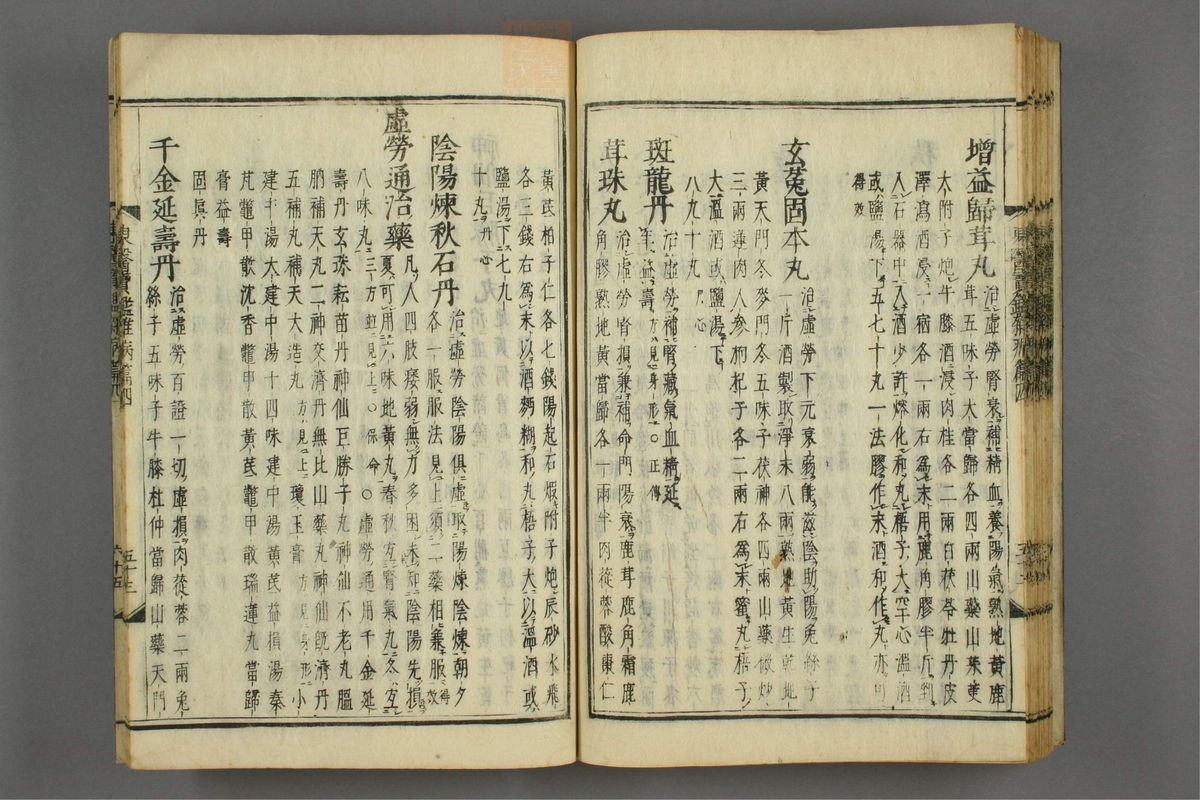 增益歸茸丸治虛勞腎衰補精血養陽氣熟地黃鹿
茸五味子大當歸各四兩山藥山茱萸
大附子炮牛膝酒浸肉桂各二兩白茯苓牡丹皮
澤瀉酒浸一宿各一兩右爲末用鹿角膠半斤剉
入石器中入酒少許熔化和丸梧子大空心溫酒
或鹽湯下五七十丸一法膠作末酒和作丸亦可
得效
玄菟固本丸治虛勞下元衰弱能滋陰助陽兎絲子
一斤酒製取淨末八兩熟地黃生乾地
黃天門冬麥門冬五味子茯神各四兩山藥微炒
三兩蓮肉人參枸杞子各二兩右爲末蜜丸梧子
大溫酒或鹽湯下
八九十丸丹心
斑龍丹治虛勞補腎藏氣血精延
年益壽方見身形○正傳
茸珠丸治虛勞腎損兼補命門陽衰鹿茸鹿角霜鹿
角膠熟地黃當歸各一兩半肉蓯蓉酸棗仁
黃芪柏子仁各七錢陽起石煆附子炮辰砂水飛
各三錢右爲末以酒麪糊和丸梧子大以溫酒或
鹽湯下七九
十丸丹心
陰陽煉秋石丹治虛勞陰陽俱虛取陽煉陰煉朝夕
各一服服法見上須二藥相兼服得效
虛勞通治藥凡人四肢痿弱無力多困未知陰陽先損
夏可用六味地黃丸春秋腎氣丸冬
八味丸三方並見上○保命○虛勞通用千金延
壽丹玄珠耘苗丹神仙巨勝子丸神仙不老丸膃
肭補天丸二神交濟丹無比山藥丸神仙旣濟丹
五補丸補天大造丸方見上瓊玉膏方見身形小
建中湯大建中湯十四味建中湯黃芪益損湯秦
艽鱉甲散沈香鱉甲散黃芪鱉甲散瑞蓮丸當歸
膏益壽
固眞丹
千金延壽丹治虛勞百證一切虛損肉蓯蓉二兩兎
絲子五味子牛膝杜仲當歸山藥天門
東醫寶鑑雜病篇四